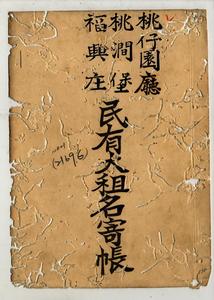 桃仔園廳
桃澗堡
福興庄
民有大租名寄帳